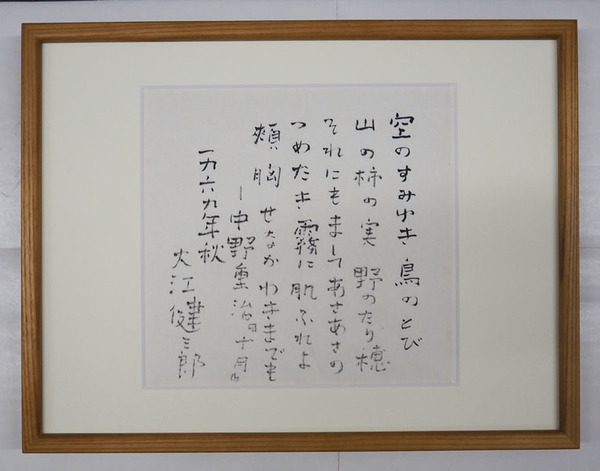 空のすみゆき 鳥のとび
山の柿の実 野のたり穂
それにもまして あさあさの
つめたき霧に 肌ふれよ
頬 胸 せなか わきまでも
―中野重治「十月」
一九六九年秋
大江健三郎